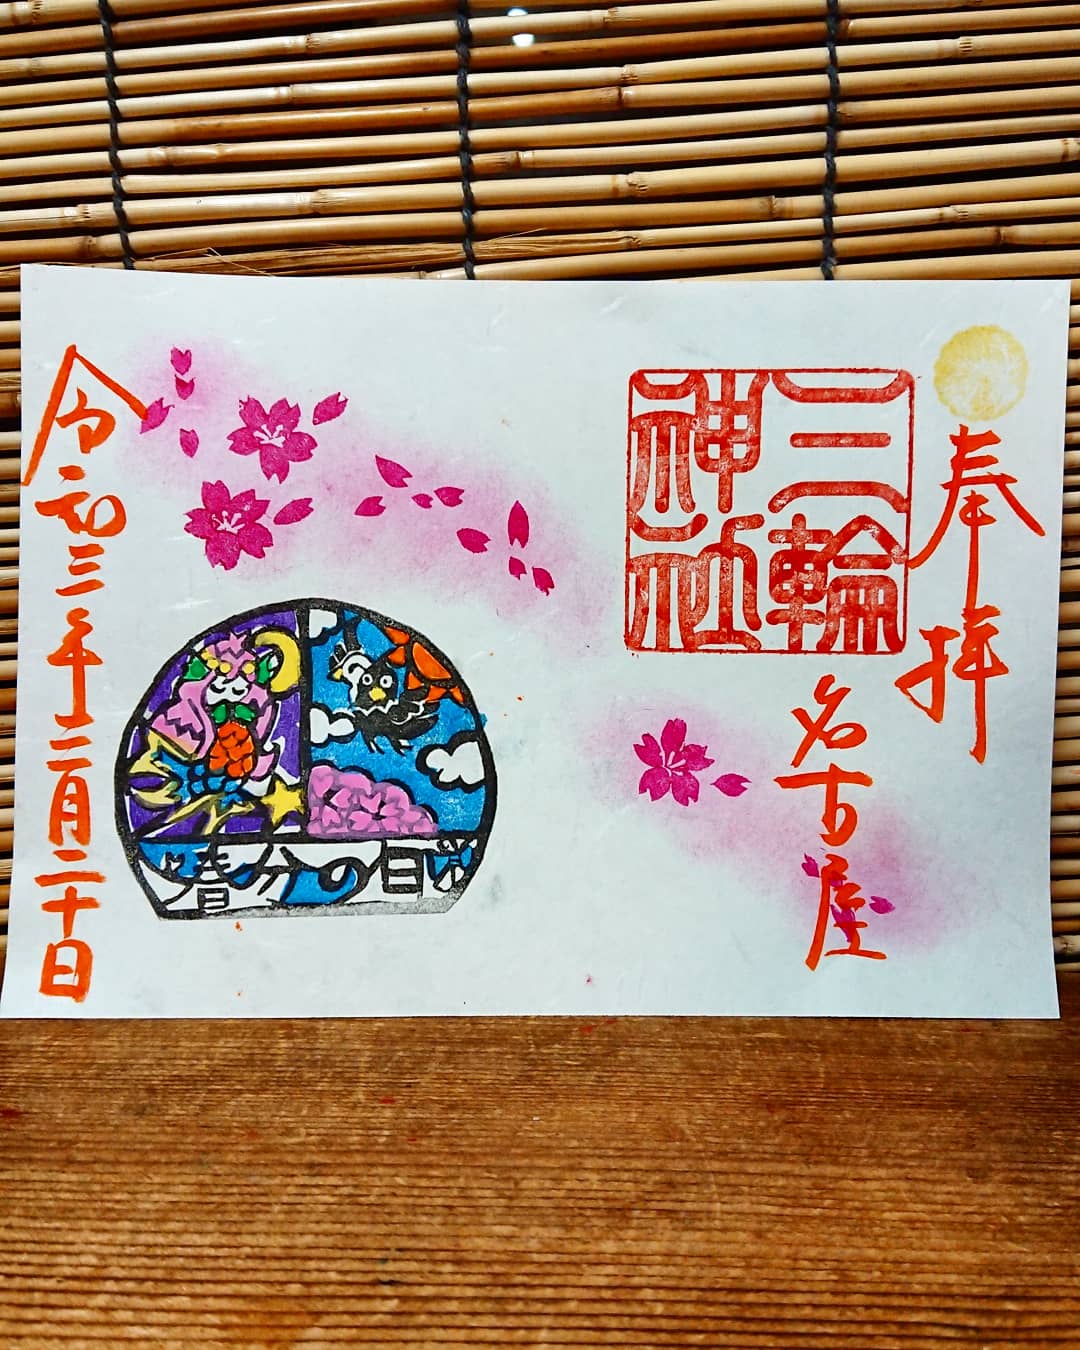 奉拝
三輪神社
名古屋
春分の日
令和三年三月二十日